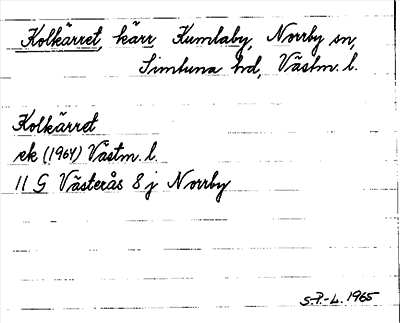 Kolkärret, kärr Kumlaby, Norrby sn,
Simtuna hd, Västm. l.
Kolkärret
ek (1964) Västm. l.
11 G Västerås 8 j Norrby
S.P.-L. 1965